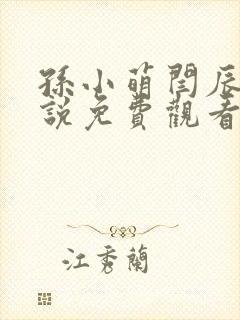 孫小萌閆辰
說免費觀看
江秀蘭